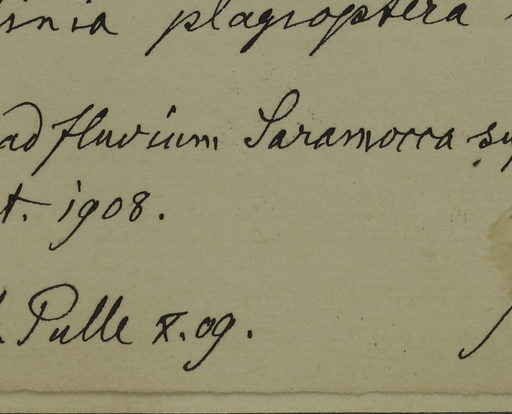 inia plagioptera
ad fluvium Saramacca su
t. 1908.
. Pulle X.09.